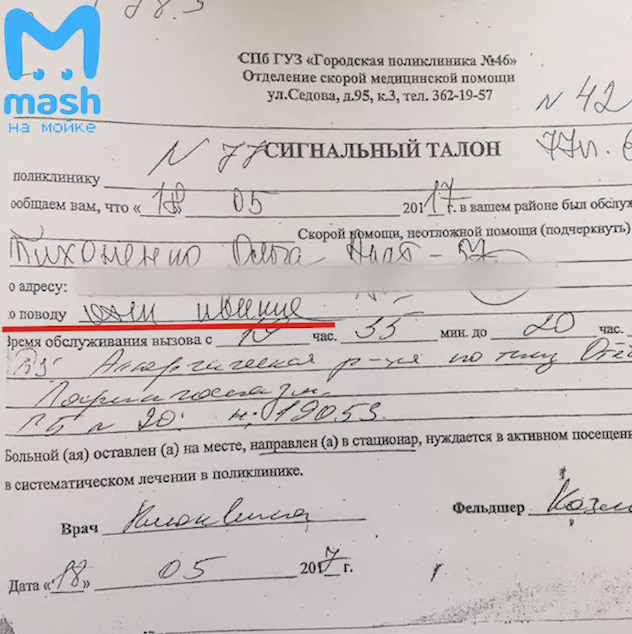 mash
на мойке
СПб ГУЗ «Городская поликлиника №46»
Отделение скорой медицинской помощи
ул.Седова, д.95, к.3, тел. 362-19-57
N 42
N 77 СИГНАЛЬНЫЙ ТАЛОН
поликлинику
ообщаем вам, что «18» 05 2017г. в вашем районе был обслу
Скорой помощи, неотложной помощи (подчеркнуть)
Тихоненко Ольга
о адресу:
о поводу
Время обслуживания вызова с 19 час. 35 мин. до 20 час.
Аллергическая р-ция по типу Отё
Ларингоспазм.
ГБ № 20. н: 19053.
Больной (ая) оставлен (а) на месте, направлен (а) в стационар, нуждается в активном посещени
в систематическом лечении в поликлинике.
Врач
Фельдшер
Дата «18» 05 2017 г.